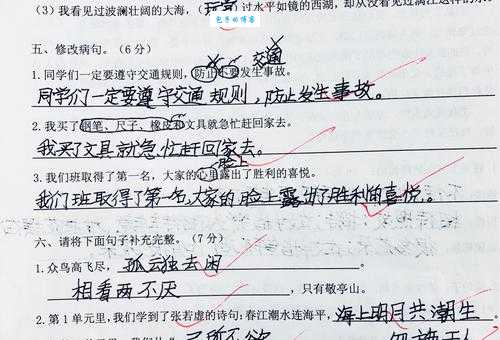 (3)我看见过波澜壮阔的大海,( 玩赏 )过水平如镜的西湖,却从没看见过漓江这样的水
包子的博客
五、修改病句。(6分)
交通
1.同学们一定要遵守交通规则,防止不要发生事故。
同学们一定要遵守交通规则,防止发生事故。
2.我买了钢笔、尺子、橡皮和文具就急忙赶回家去。
我买了文具就急忙赶回家去。
脸上
3.我们班取得了第一名,大家的心里露出了胜利的喜悦。
我们班取得了第一名,大家的脸上露出了胜利的喜悦。
六、请将下面句子补充完整。(7分)
1.众鸟高飞尽,孤云独去闲
相看两不厌,只有敬亭山。
2.第1单元里,我们学到了张若虚的诗句:春江潮水连海平,海上明月共潮生
己所不欲 勿施于人